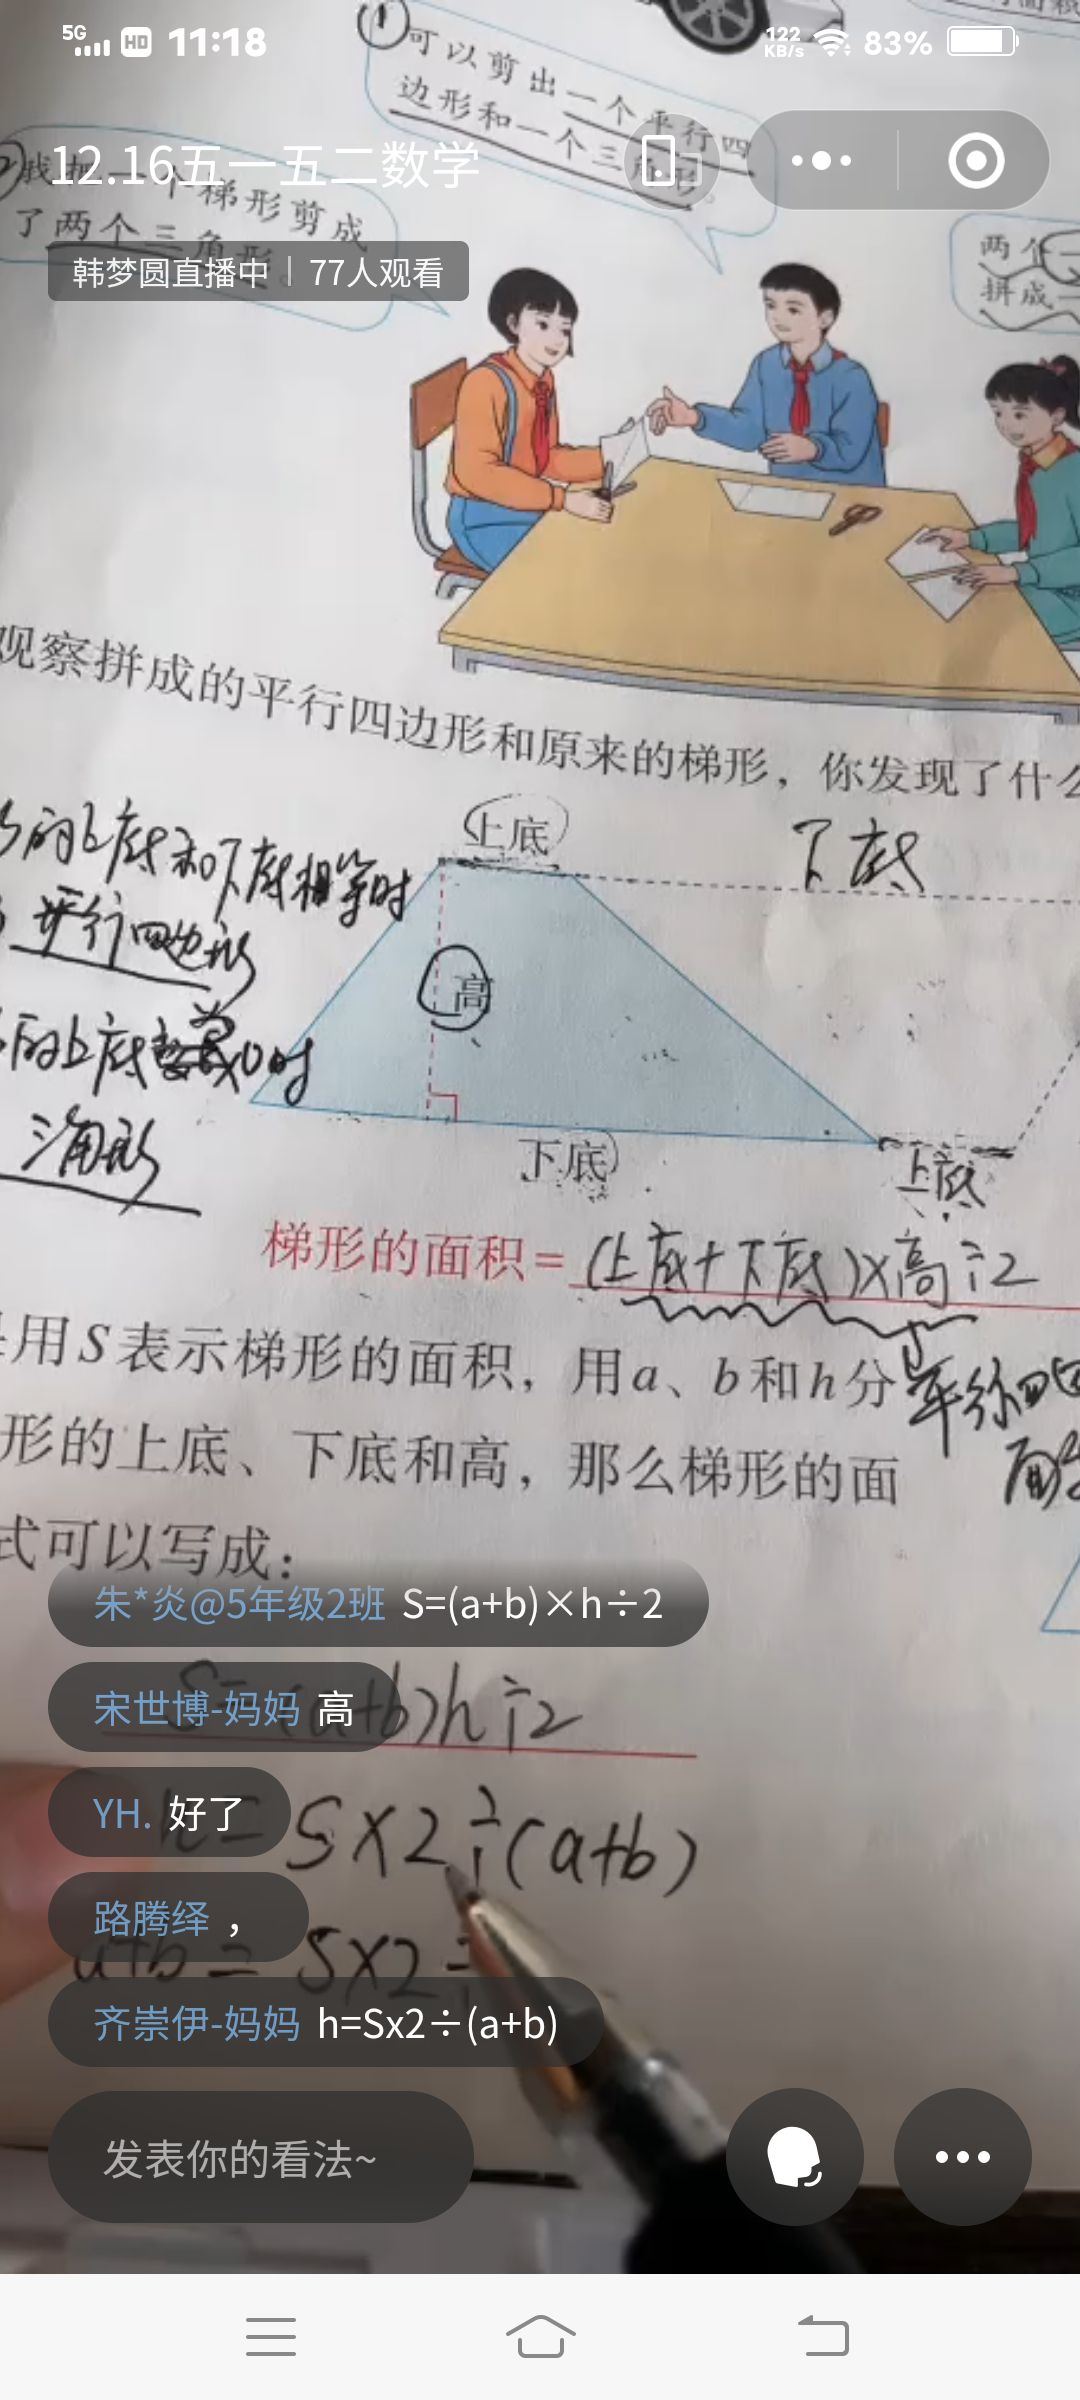 5G HD 11:18 122 KB/s 83%
①可以剪出一个平行四
边形和一个三角形。
12.16五一五二数学
个梯形剪成
了两个三角形。
两个一
拼成一
韩梦圆直播中 77人观看
观察拼成的平行四边形和原来的梯形，你发现了什么
上底
下底
的上底和下底相等时
平行四边形
高
的上底
0时
三角形
下底
上底
梯形的面积=(上底+下底)×高÷2
用S表示梯形的面积，用a、b和h分
平行四
形的上底、下底和高，那么梯形的面
面
式可以写成：
朱*炎@5年级2班 S=(a+b)×h÷2
S=(a+b)h÷2
宋世博-妈妈 高
h=S×2÷(a+b)
YH. 好了
a+b=S×2÷
路腾绎 ，
齐崇伊-妈妈 h=Sx2÷(a+b)
发表你的看法~